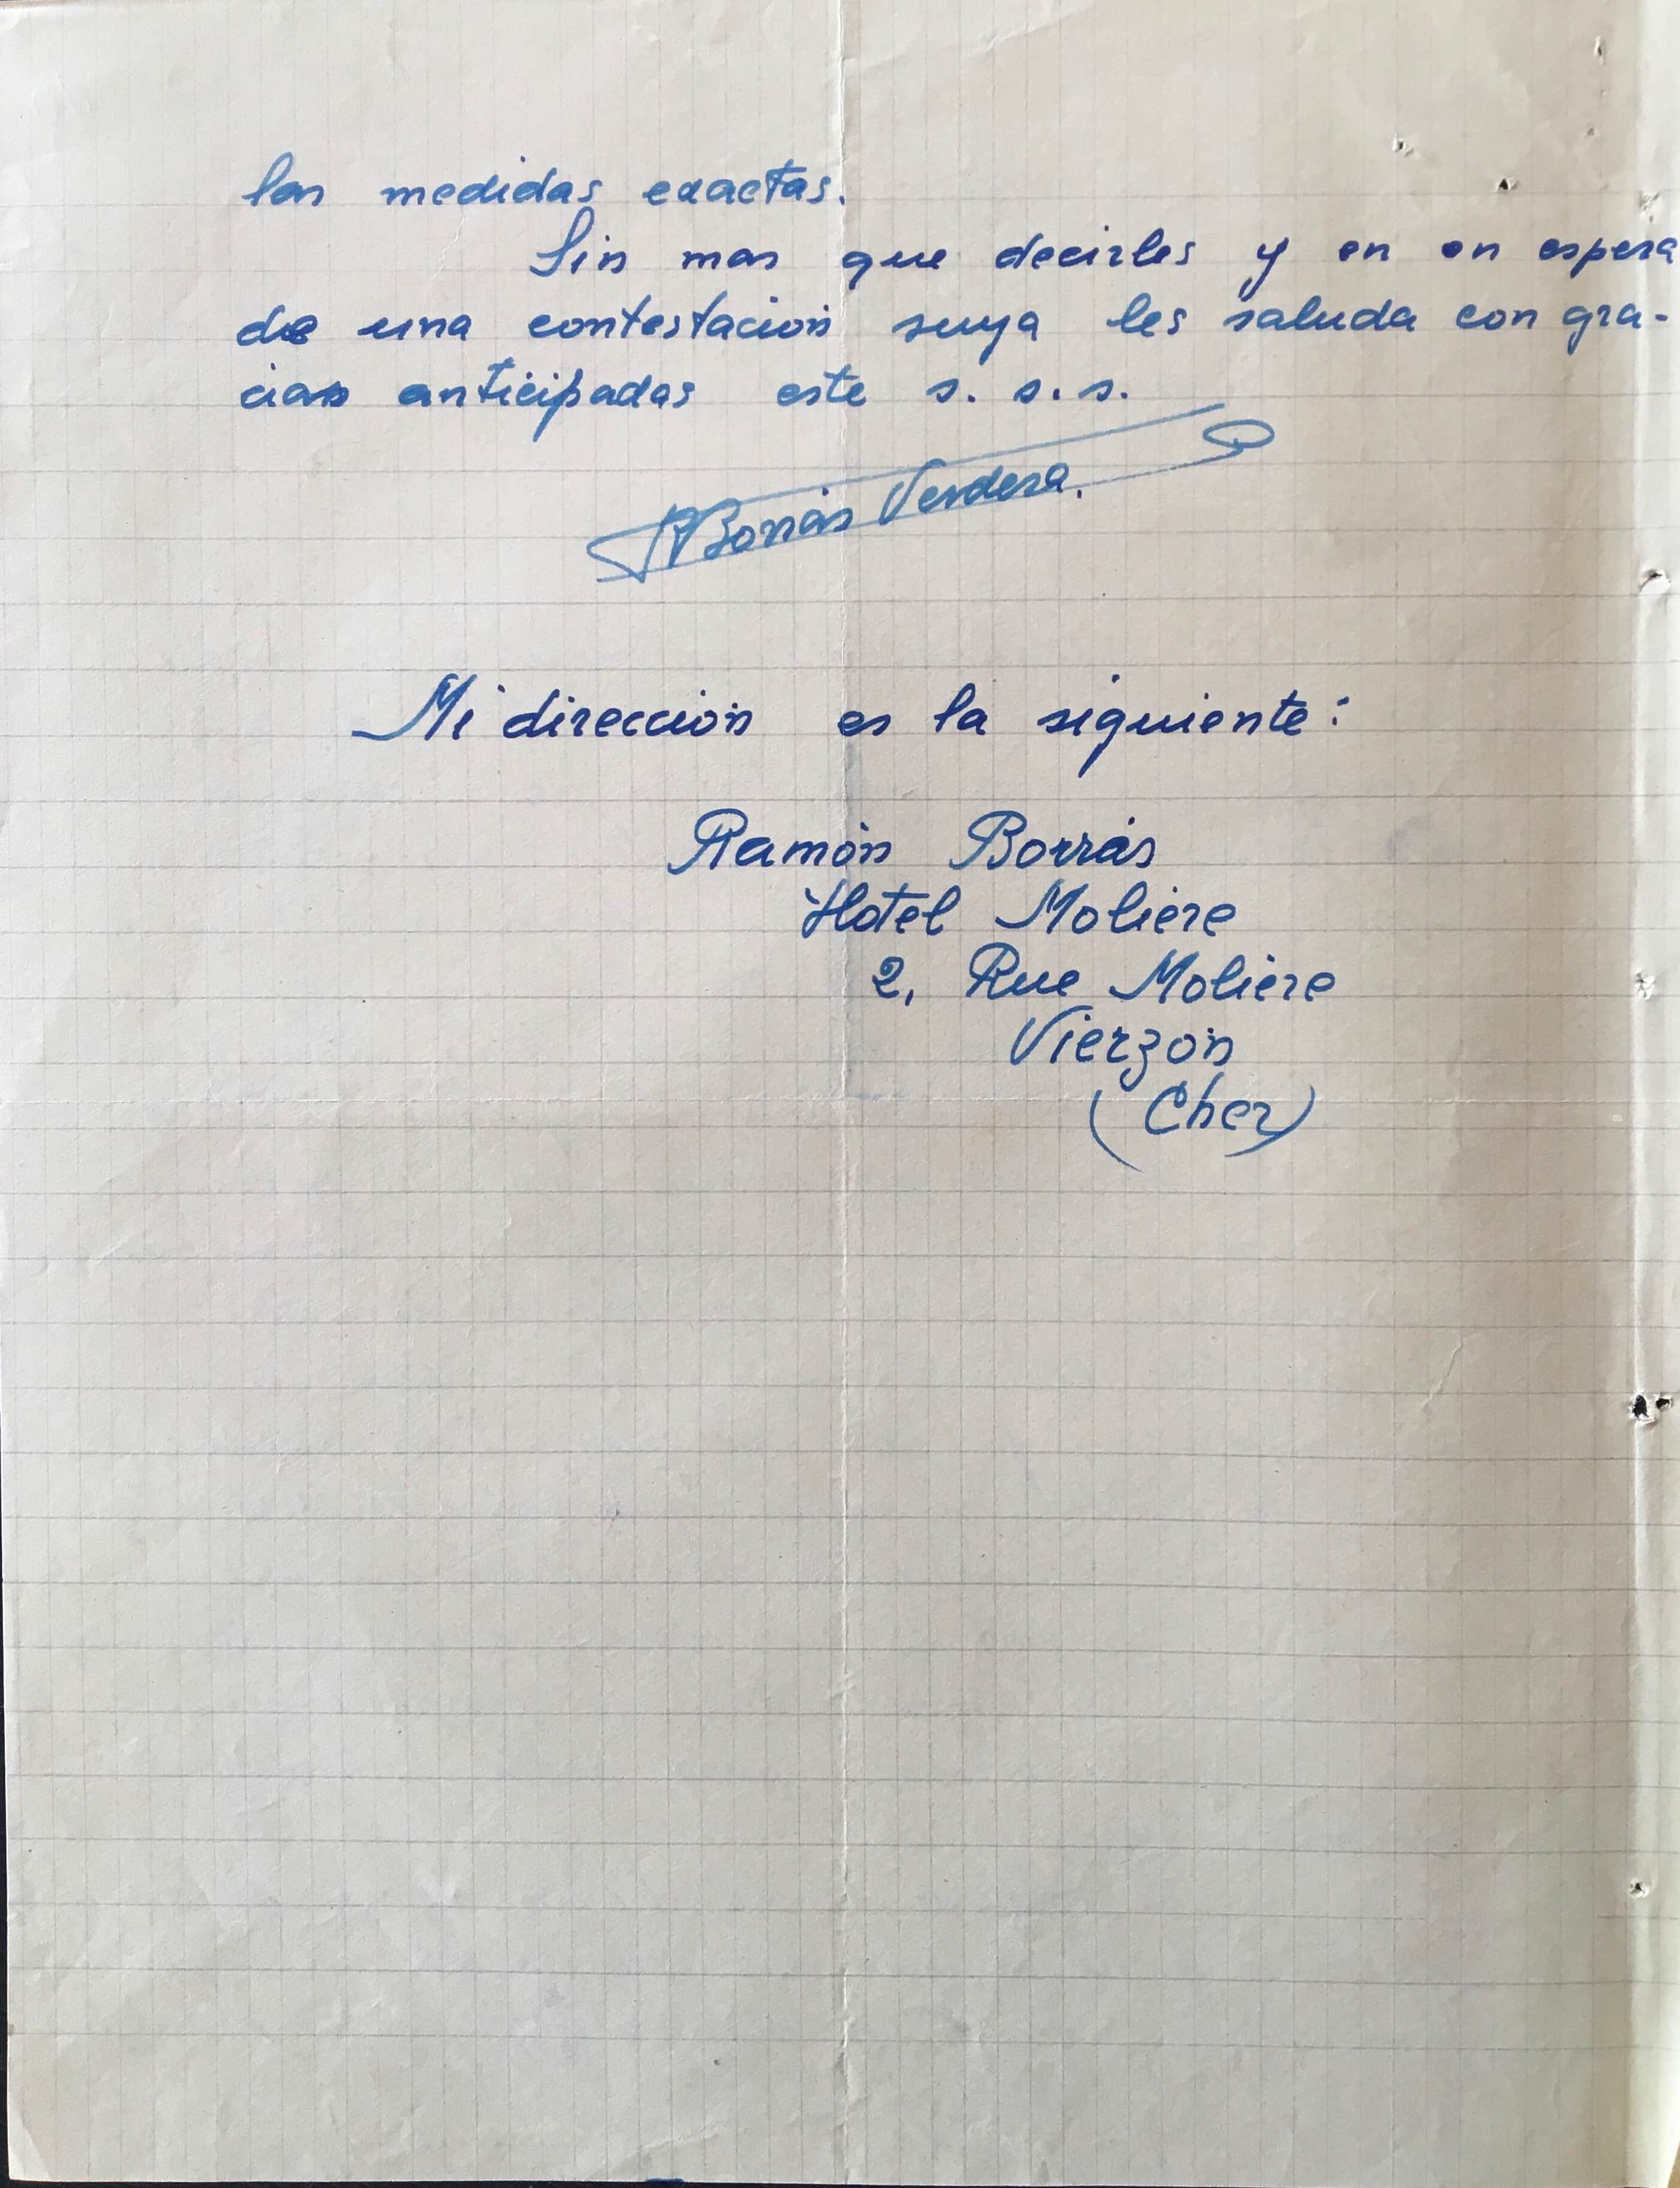 las medidas exactas.
Sin mas que decirles y en en espera
de una contestación suya les saluda con gra-
cias anticipadas este s. s. s.
RBorrás Verdera.
Mi dirección es la siguiente:
Ramón Borrás
Hotel Molière
2, Rue Molière
Vierzón
(Cher)